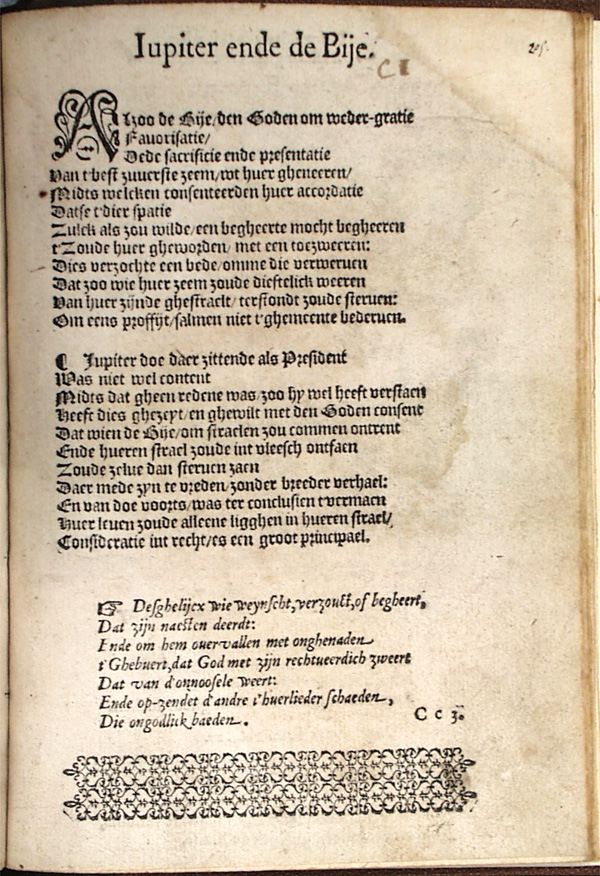 Iupiter ende de Bije.
205.
C1
Alzoo de Bije/den Goden om weder-gratie
Favorisatie/
Dede sacrificie ende presentatie
Van t'best zuuerste zeem/wt huer gheneeren/
Midts welcken consenteerden huer accordatie
Datse t'dier spatie
Zulck als zou wilde/een begheerte mocht begheeren
t'Zoude huer gheworden/met een toezweeren:
Dies verzochte een bede/omme die verweruen
Dat zoo wie huer zeem zoude dieftelick weeren
Van huer zijnde ghestraelt/terstondt zoude steruen:
Om eens proffijt/salmen niet t'ghemeente bederuen.
¶ Jupiter doe daer zittende als President
Was niet wel content
Midts dat gheen redene was/zoo hy wel heeft verstaen
Heeft dies ghezeyt/en ghewilt met den Goden consent
Dat wien de Bije/om straelen zou commen ontrent
Ende hueren strael zoude int vleesch ontfaen
Zoude zelue dan steruen zaen
Daer mede zyn te vreden/zonder breeder verhael:
En van doe voorts/was ter conclusien t'vermaen
Huer leuen zoude alleene ligghen in hueren strael/
Consideratie int recht/es een groot principael.
☞ Desghelijcx wie weynscht,verzouct,of begheert,
Dat zijn naesten deerdt:
Ende om hem ouervallen met onghenaden
t'Ghebuert,dat God met zijn rechtueerdich zweert
Dat van d'onnoosele weert:
Ende op-zendet d'andre t'huerlieder schaeden,
Die ongodlick baeden.
Cc 3.